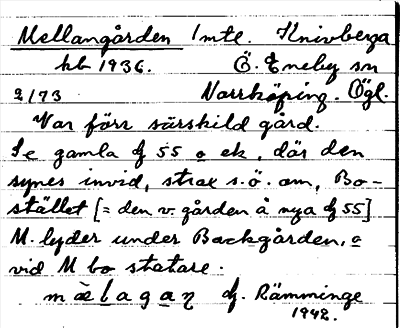 Mellangården 1 mtl. Knivberga
hb 1936. Ö. Eneby sn
2173 Norrköping. Ögl.
Var förr särskild gård.
Se gamla df 55 o ek, där den
synes invid, strax s.ö. om, Bo-
stället [= den v. gården å nya df 55]
M. lyder under Backgården, o
vid M bo statare.
df. Rämminge
1942.